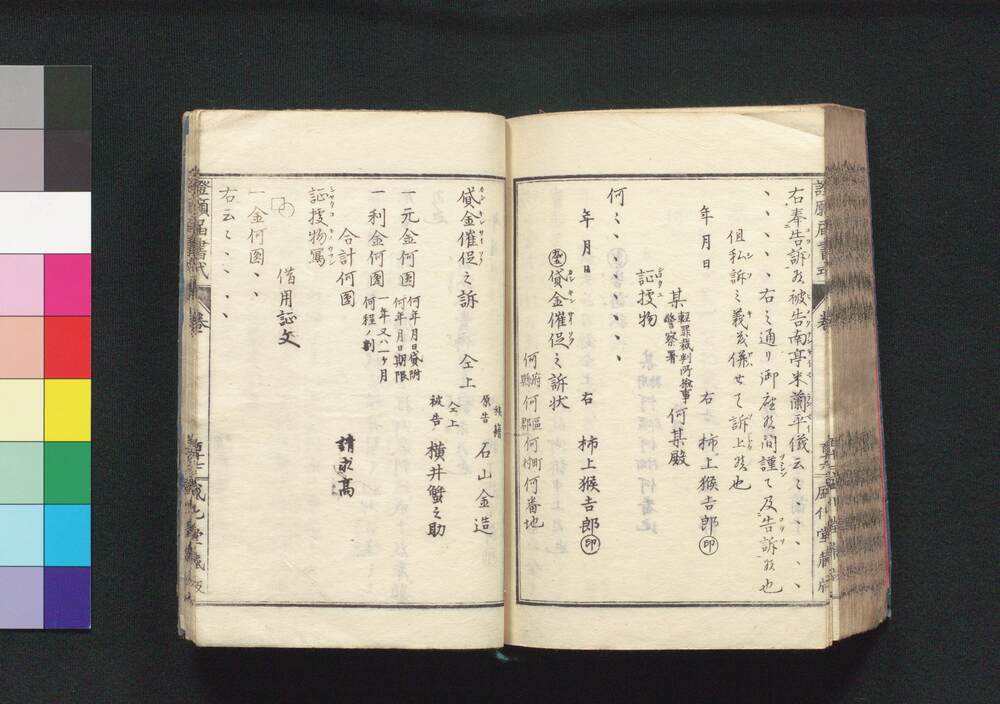 右奉告訴候被告南亭米蘭平儀云々、、、、
、、、、右之通リ御座候間謹テ及告訴候也
但私訴之義ハ併セテ訴上候也
年月日
右 柿上猴吉郎㊞
某 輕罪裁判所檢事 警察署 何某殿
証授物
何々、、、、、
年月日
右 柿上猴吉郎㊞
貸金催促之訴状
何府縣何區郡何町村何番地
貸金催促之訴 仝上
族籍
原告 石山金造
仝上
被告 横井蟹之助
請求高
一元金何圓 何年月日貸附 何年月日期限
一利金何圓 一年又ハ一ヶ月 何程ノ割
合計何圓
証授物寫
借用証文
一金何圓、、
右云々、、、、